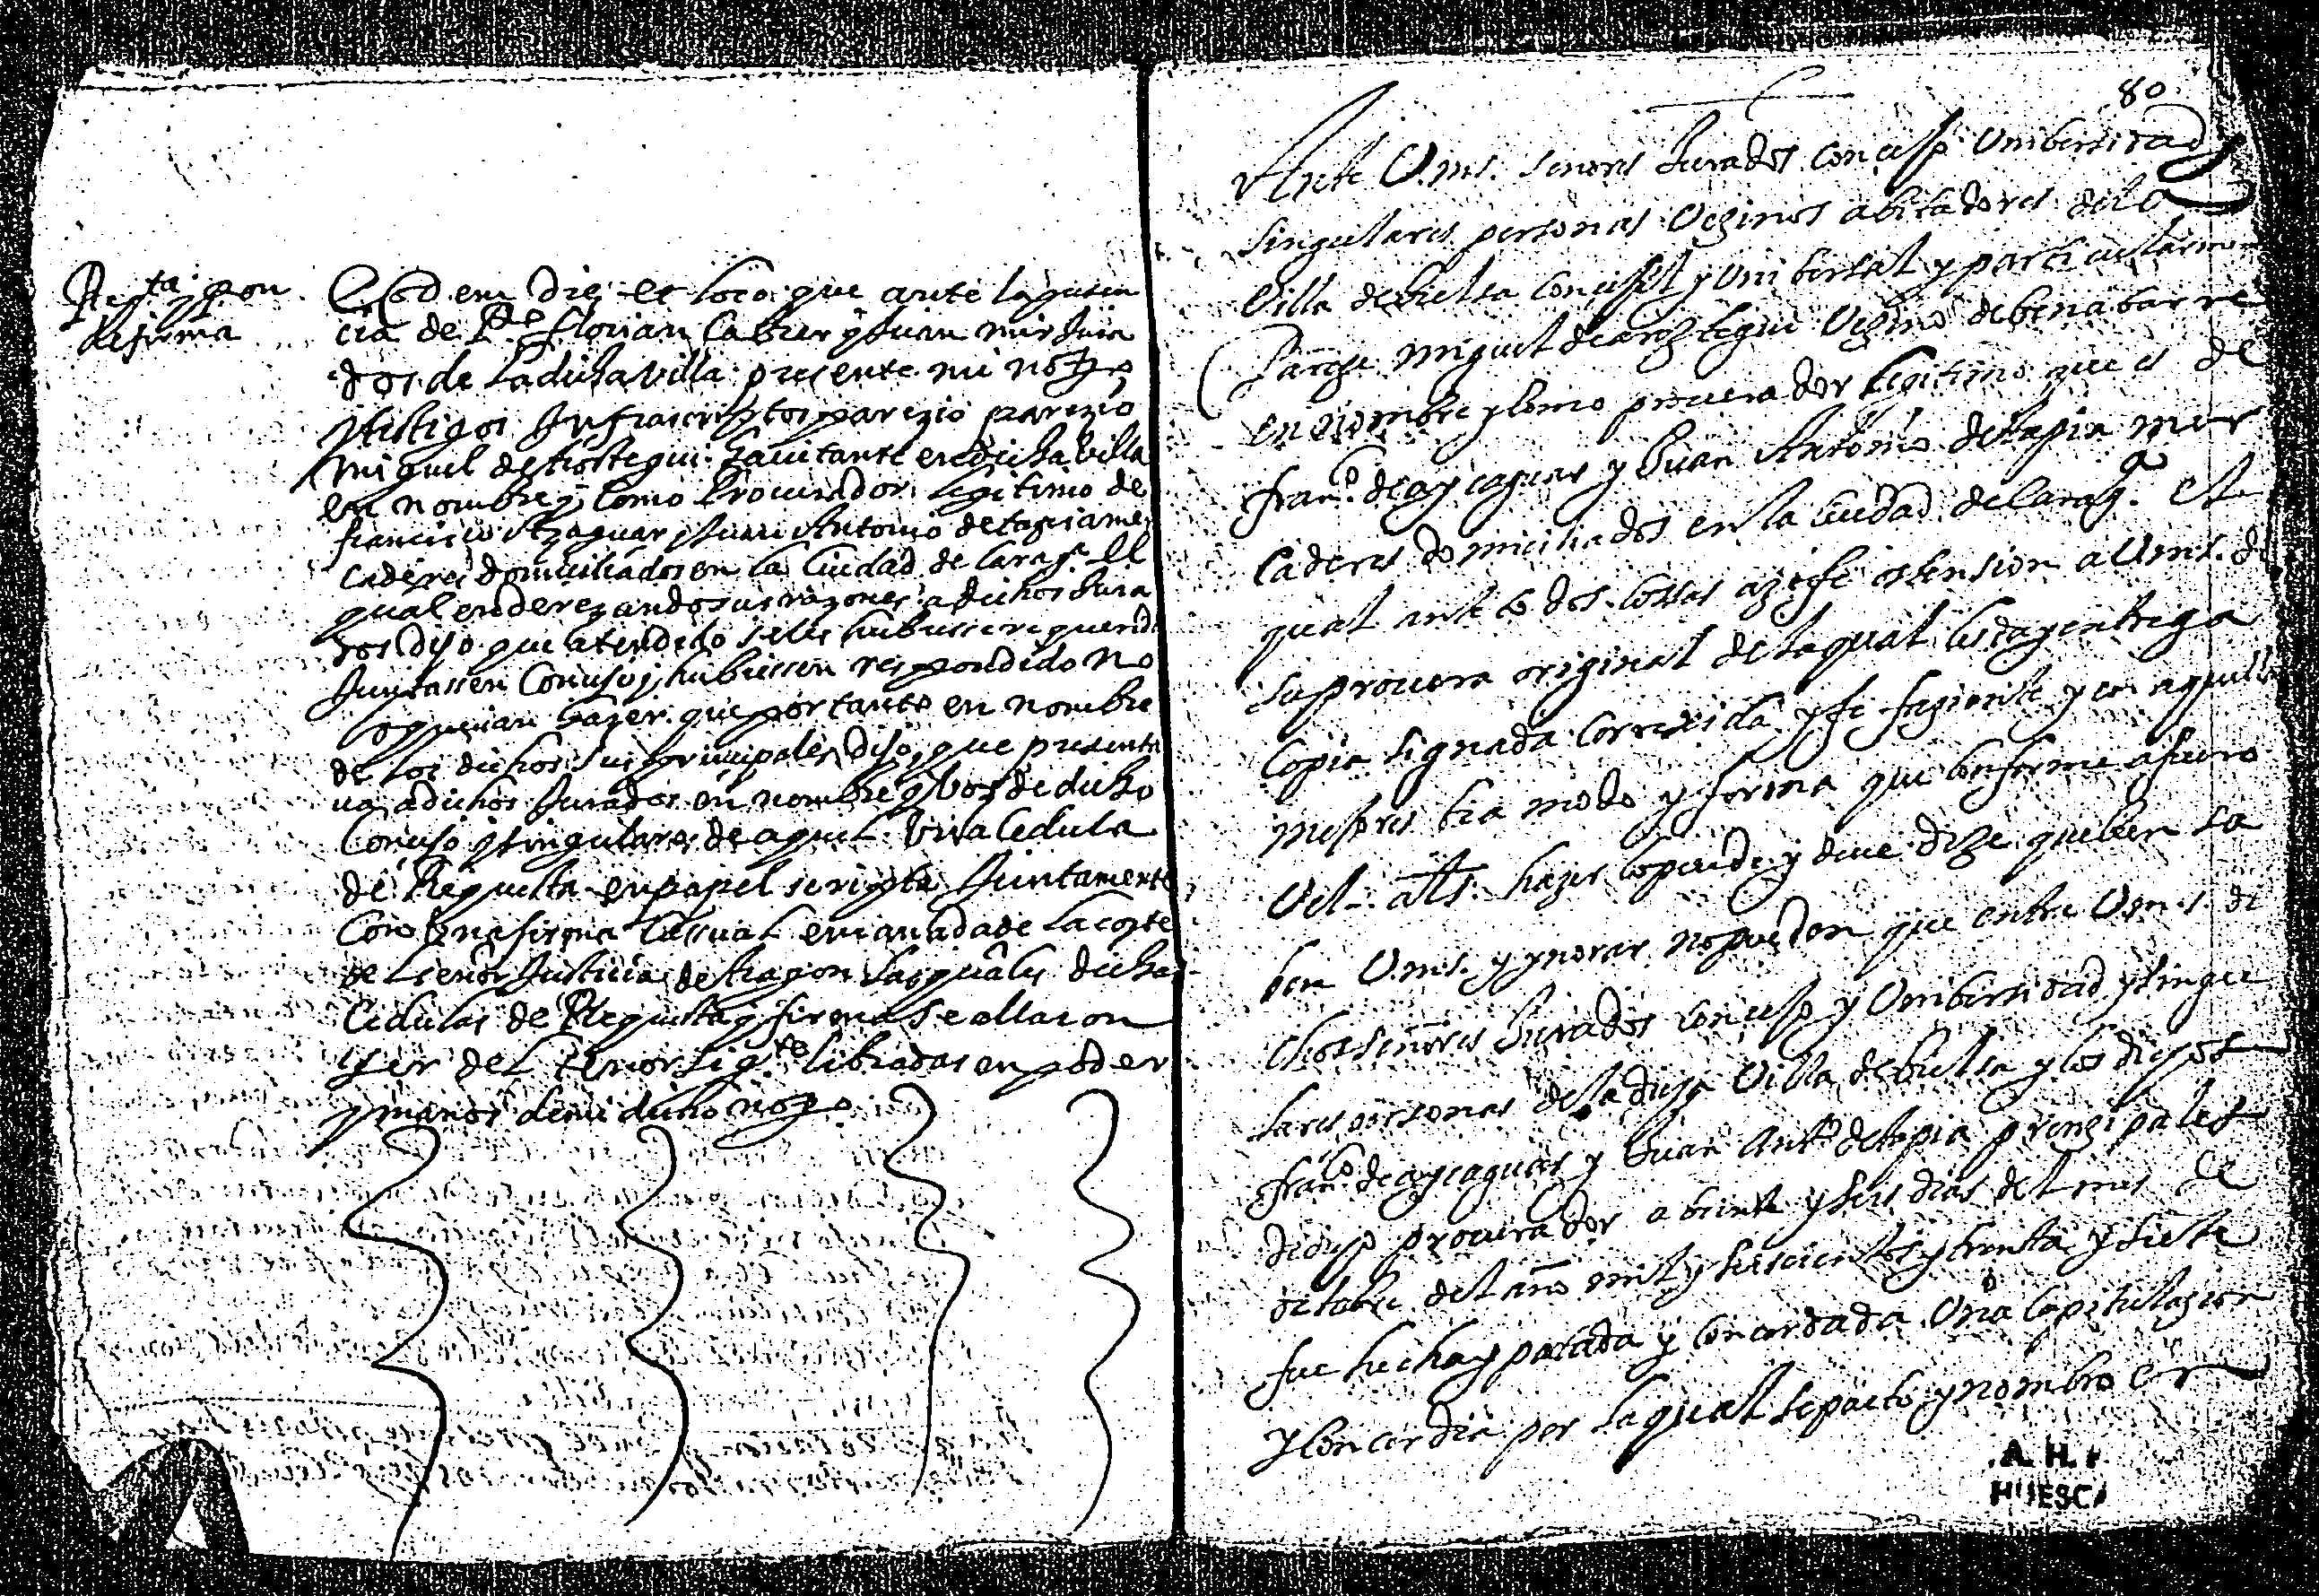 de firma
Eodem die et loco que ante la presen
cia de P.º Florian Cabier y Juan mir Jura
dos de la dicha villa presente mi not.º
y testigos Infrascriptos parezio parezio
Miguel de hostegui havitante en dicha villa
en nombre y Como Procurador legitimo de
francisco Azaguar y Juan Antonio de tapia mer
caderes domiciliados en la Ciudad de Carag.ª El
qual enderezando sus razones a dichos Jura
dos dijo que atendido se les hubiesse requerido
Juntassen Consejo y hubiessen respondido no
lo querian hazer que por tanto en nombre
de los dichos sus principales dijo que presenta
ua a dichos Jurados en nombre y voz de dicho
Consejo y singulares de aquel Una Cedula
de Requesta en papel scripta Juntamente
Con Una firma Casual emanada de la corte
del señor Justicia de Aragon las quales dichas
Cedulas de Requesta y firma se allaron
ser del tenor sig.te libradas en poder
y manos de mi dicho not.º
80
Ante V.ms. senores Jurados concejo Unibersidad y
singulares personas Vezinos abitadores de la
Villa de bielsa concejil y Unibersal y particularmen
Pareze miguel de aroztegui Vezino de benabarre
en nombre y como procurador legitimo que es de
fran.co de aycaguas y Juan Antonio de tapia mer
caderes domiciliados en la ciudad de Carag.ª El
qual ante todas cossas aze fe ostension a V.ms. de
su procura original de la qual les da y entrega
copia signada corregida y fe faziente y en aquellos
mejores bia modo y forma que conforme a fuero
Vel als. hazer lo puede y deue dize que bien sa
ben V.ms. y ynorar no pueden que entre V.ms. di
chos señores Jurados concejo y Unibersidad y singu
lares personas de la dicha Villa de bielsa y los dichos
fran.co de aycaguas y Juan Ant.º de tapia prenzipales
de dicho procurador a beinte y seis dias del mes de
octubre del año mil y seiscientos y trenta y siete
fue hecha y patada y concordada Una capitulazion
y concordia por la qual se pacto y nombro en
A. H. P.
HUESCA